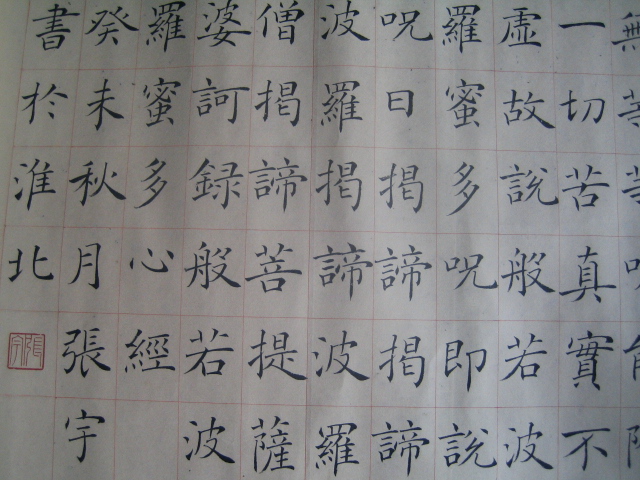 一切苦真實不
虛故說般若波
羅蜜多呪即說
呪曰揭諦揭諦
波羅揭諦波羅
僧揭諦菩提薩
婆訶録般若波
羅蜜多心經
癸未秋月張宇
書於淮北